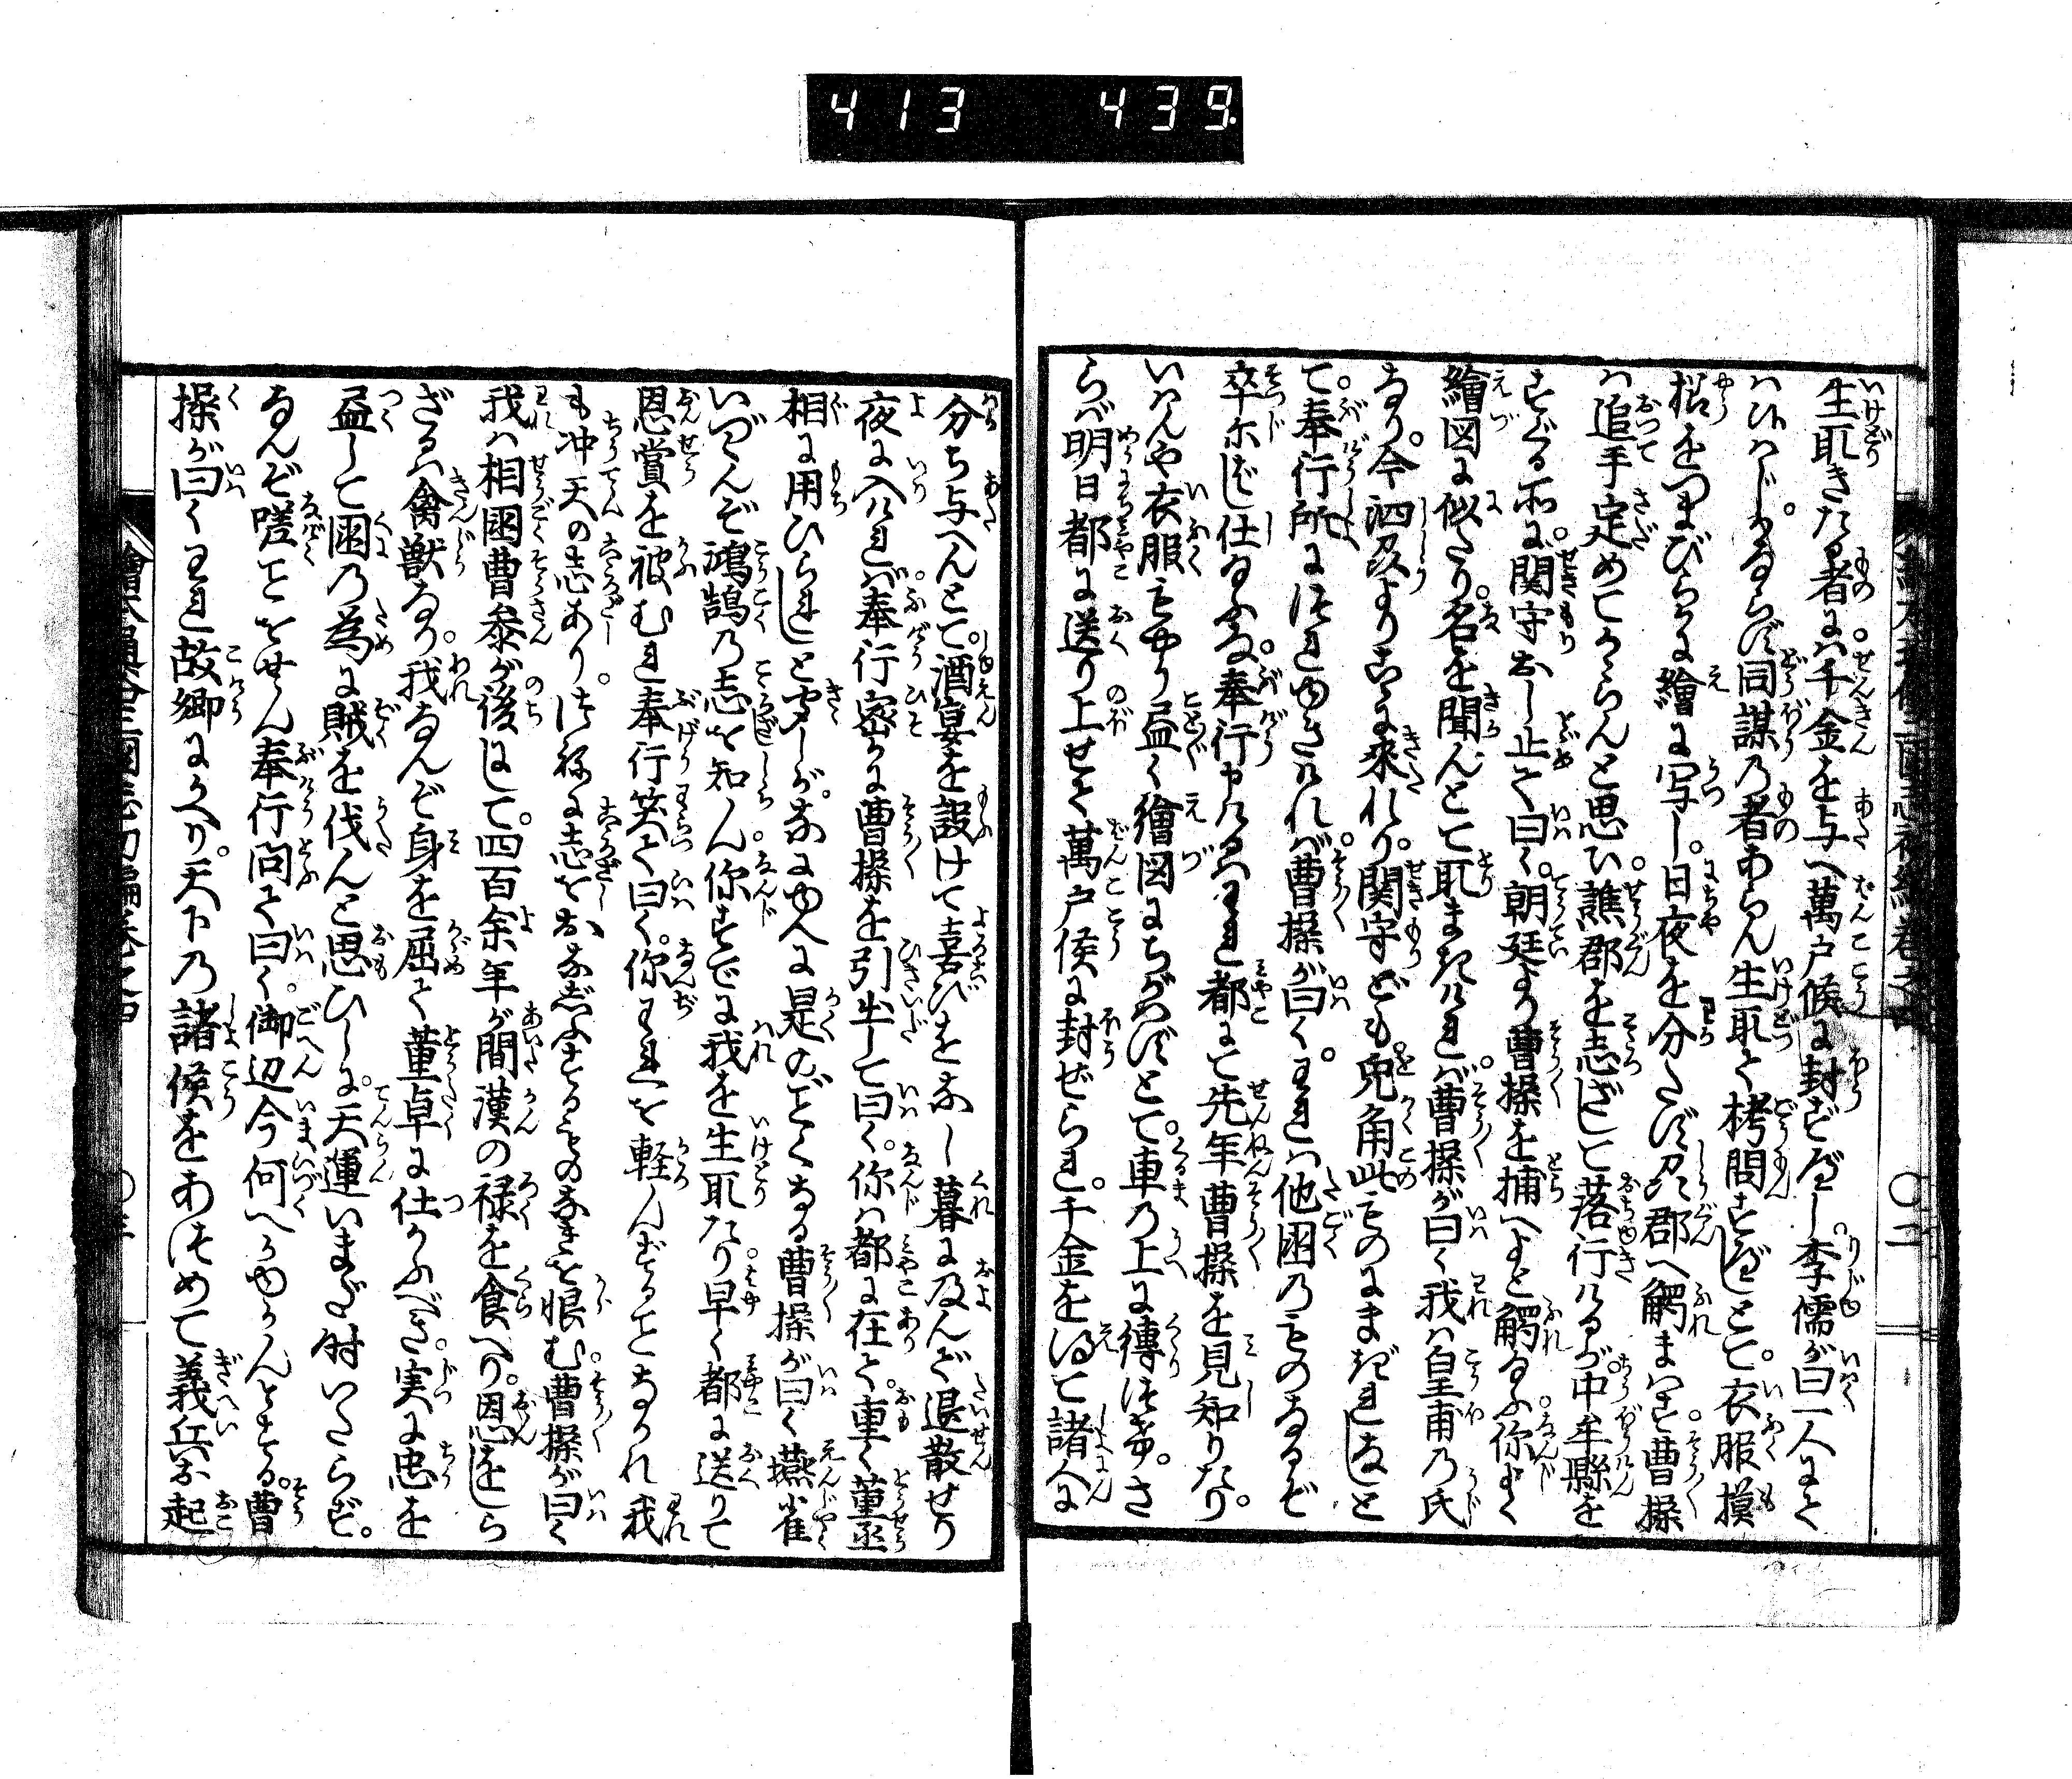 413 439.
生取きたる者には千金を与へ萬戸候に封ずべし。李儒が曰一人にて
はかなはじ。かならず同謀の者あらん生取て拷問すべしとて。衣服摸
様をつまびらかに繪に写し。日夜を分たず及郡へ觸まはす曹操
は追手定めてからんと思ひ。譙郡を志ざして落行けるが。中牟縣を
すぐる所に。関守おし止て曰く。朝廷より曹操を捕へよと觸るふ。你よく
繪図に似たり。名を聞んとて取まきければ。曹操が曰く我は皇甫の氏
なり。今泗及よりこゝに來れり。関守ども。兎角此ものにまぎれしなしと
て。奉行所につれゆきければ。曹操が曰く。それは他国のものなるぞ
卒尓ばし仕るふな。奉行申けるはそれ都にて先年曹操を見知りたり。
いはんや衣服もやう尽く繪図にちがはずとて。車の上に縛つけ。さ
らば明日都に送り上せて萬戸候に封ぜられ。千金を得て諸人に
分ち与へんとて。酒宴を設けて喜びをなし暮に及んで退散せり
夜に入ければ。奉行密かに曹操を引出して曰く。你は都に在て。重く董丞
相に用ひられしと聞しが。なにゆへに是のごとくなる曹操が曰く燕雀
いづくんぞ鴻鵠の志を知ん你すでに我を生取たり。早く都に送りて
恩賞を被むれ奉行笑て曰く。你それを軽んずることなかれ我
も冲天の志あり。つねに志をおなじふするものなきを恨む。曹操が曰く
我は相国曹参が後にして。四百余年が間漢の禄を食へり。恩をしら
ざるは禽獣なり。我なんぞ身を屈て董卓に仕かふべき。実に忠を
尽して国の為に賊を伐んと思ひしに。天運いまだ時いたらず。
なんぞ嗟ことをせん奉行問て曰く。御辺今何へかゆかんとする。曹
操が曰くそれ故郷にかへり。天下の諸候をあつめて義兵を起